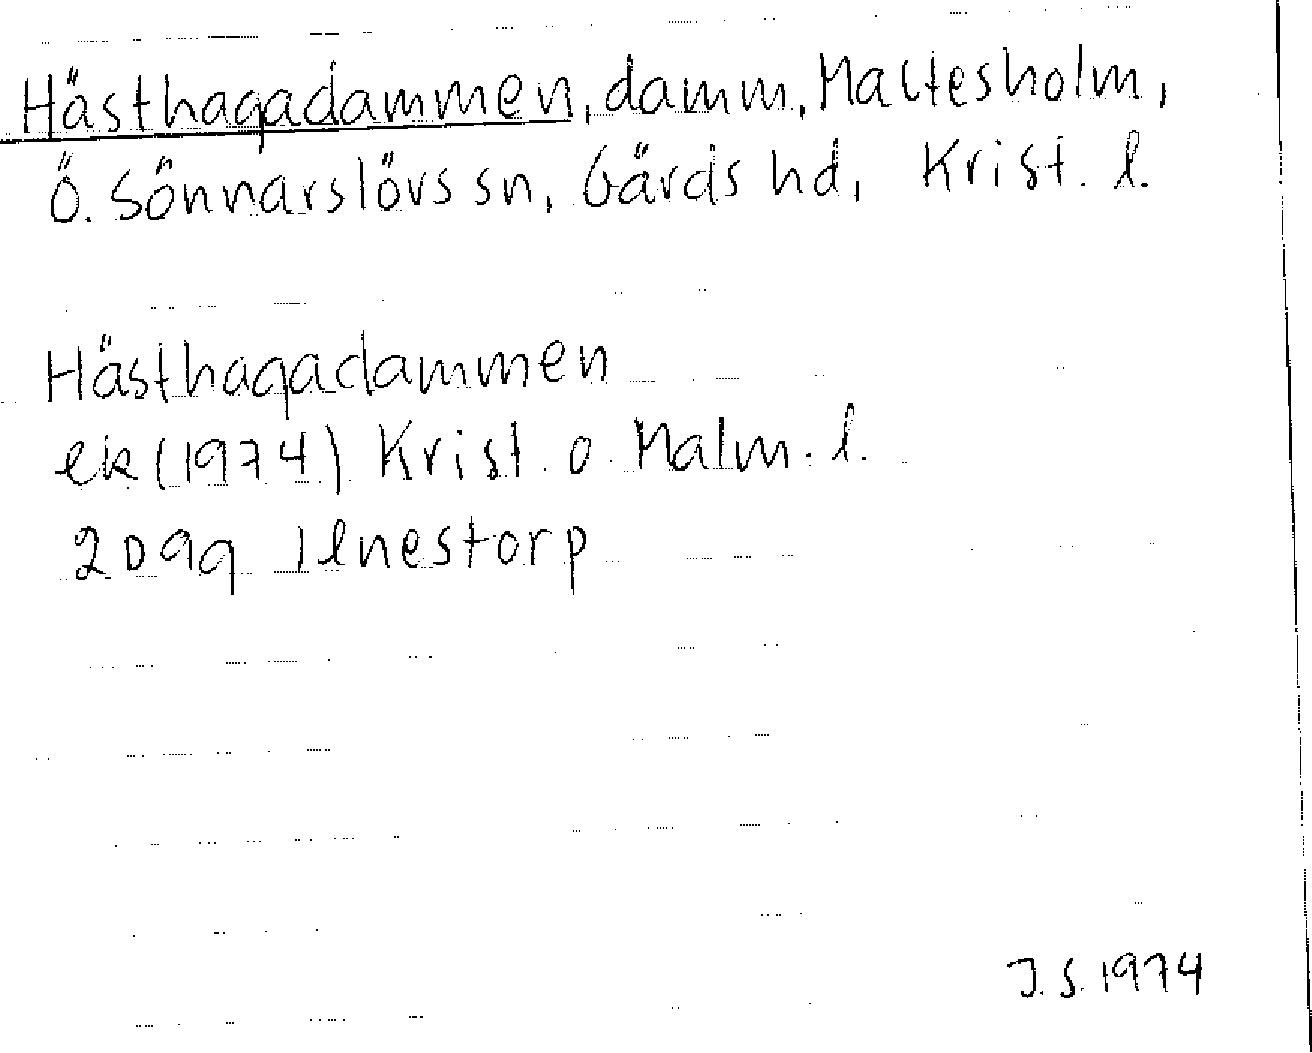 Hästhagadammen, damm, Maltesholm,
Ö. Sönnarslövs sn, Gärds hd, Krist. l.
Hästhagadammen
ek (1974) Krist. o. Malm. l.
2D9g Ilnestorp
J.S. 1974